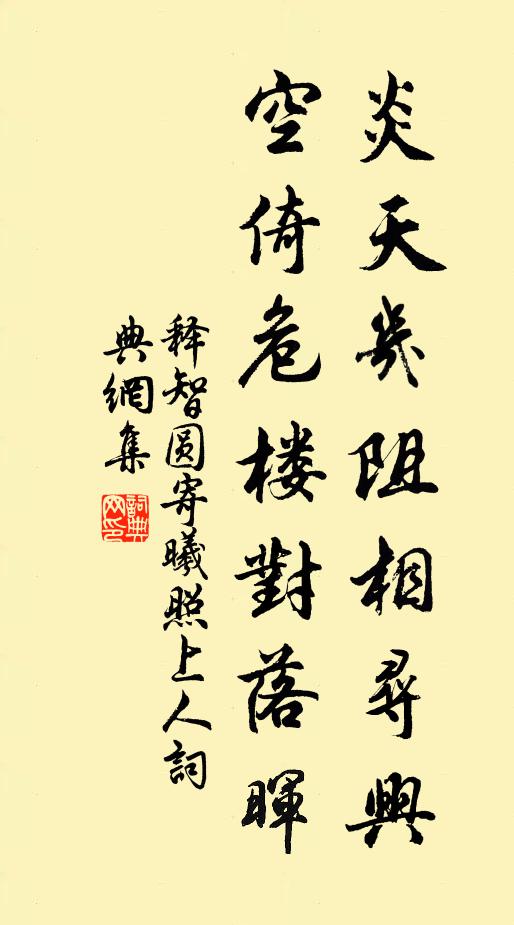 炎天幾阻相尋興
空倚危楼對落暉
释智圆寄曦照上人詞
典網集
詞典网印